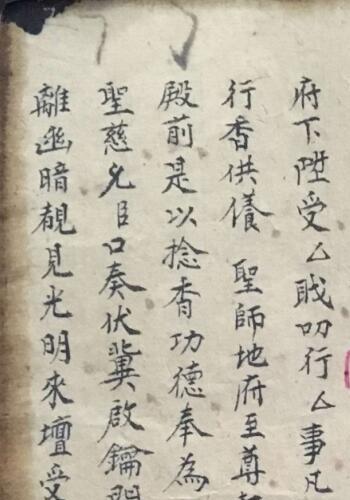 府下陞受厶職叨行厶事凡
行香供養 聖師地府至尊
殿前是以捻香功德奉為
聖慈允臣口奏伏冀啟鑰
離幽暗覩見光明來壇受